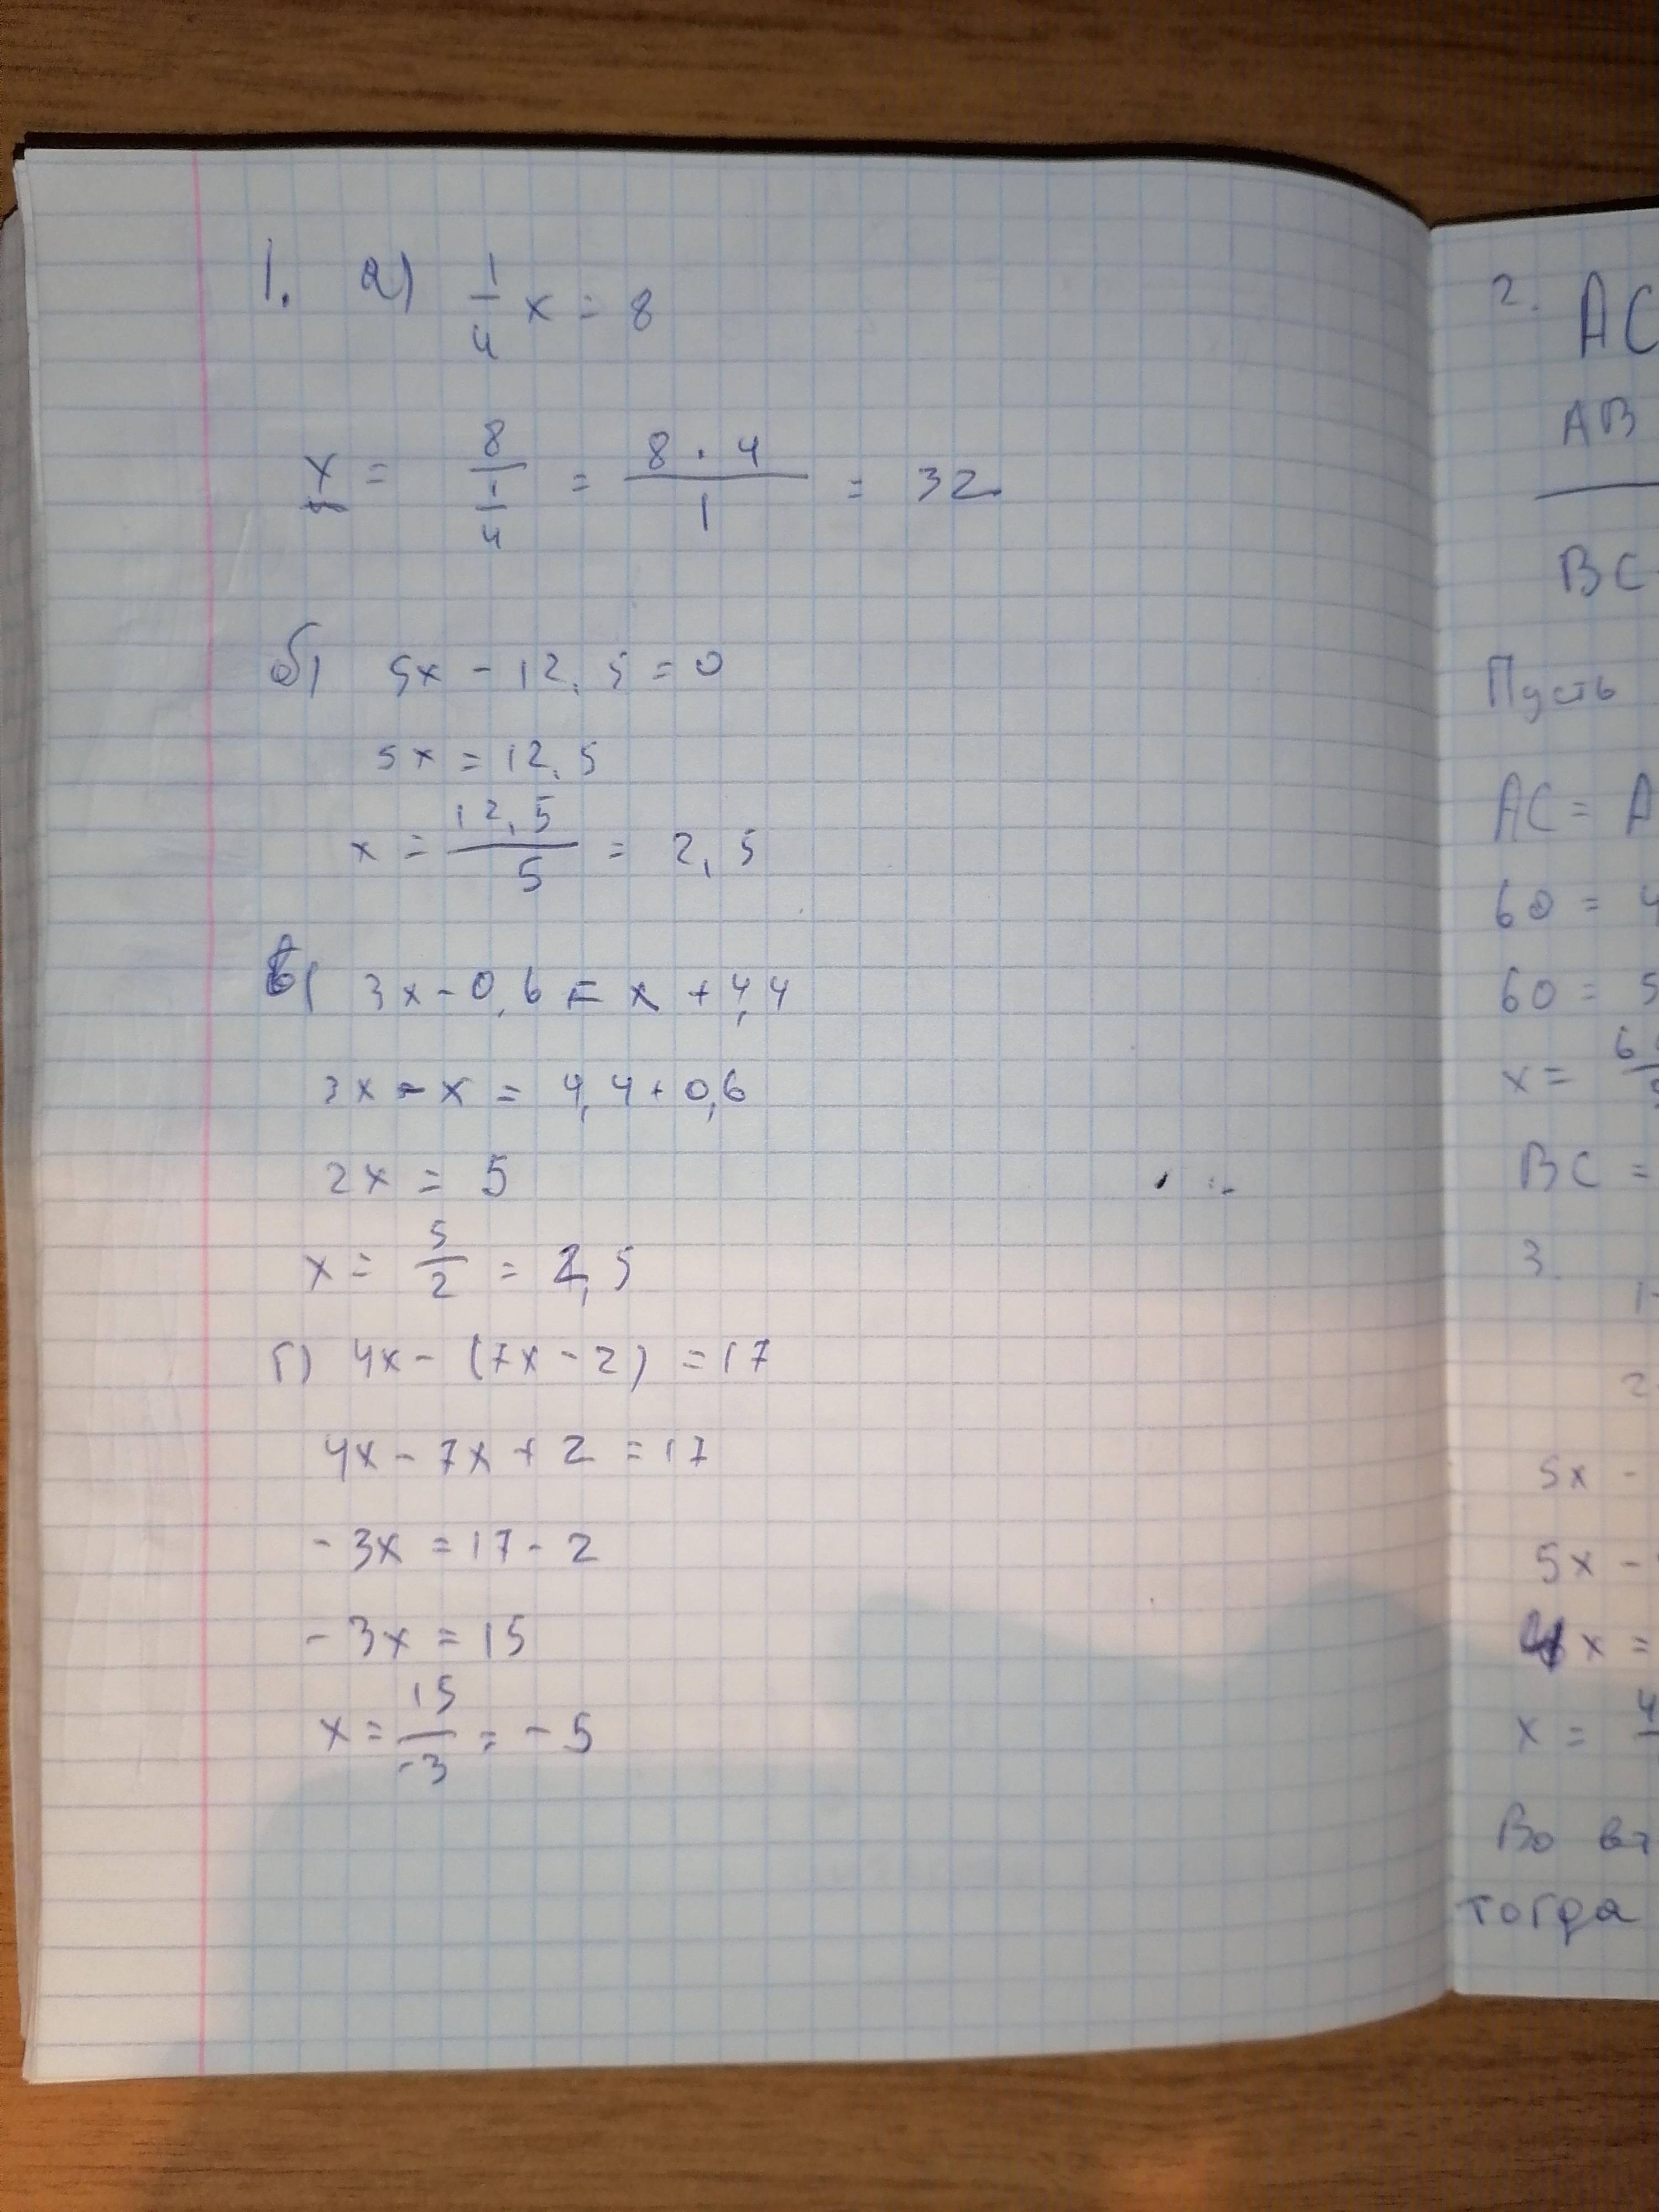 1. а) 1/4 x = 8
x = 8/(1/4) = (8 · 4)/1 = 32
б) 5x - 12,5 = 0
5x = 12,5
x = 12,5/5 = 2,5
в) 3x - 0,6 = x + 4,4
3x - x = 4,4 + 0,6
2x = 5
x = 5/2 = 2,5
г) 4x - (7x - 2) = 17
4x - 7x + 2 = 17
-3x = 17 - 2
-3x = 15
x = 15/-3 = -5
2. AC
AB
BC
Пусть
AC = A
60 = 4
60 = 5
x = 6
BC =
3.
1
2
5x -
5x -
4x =
x = 4
Во вт
тогда